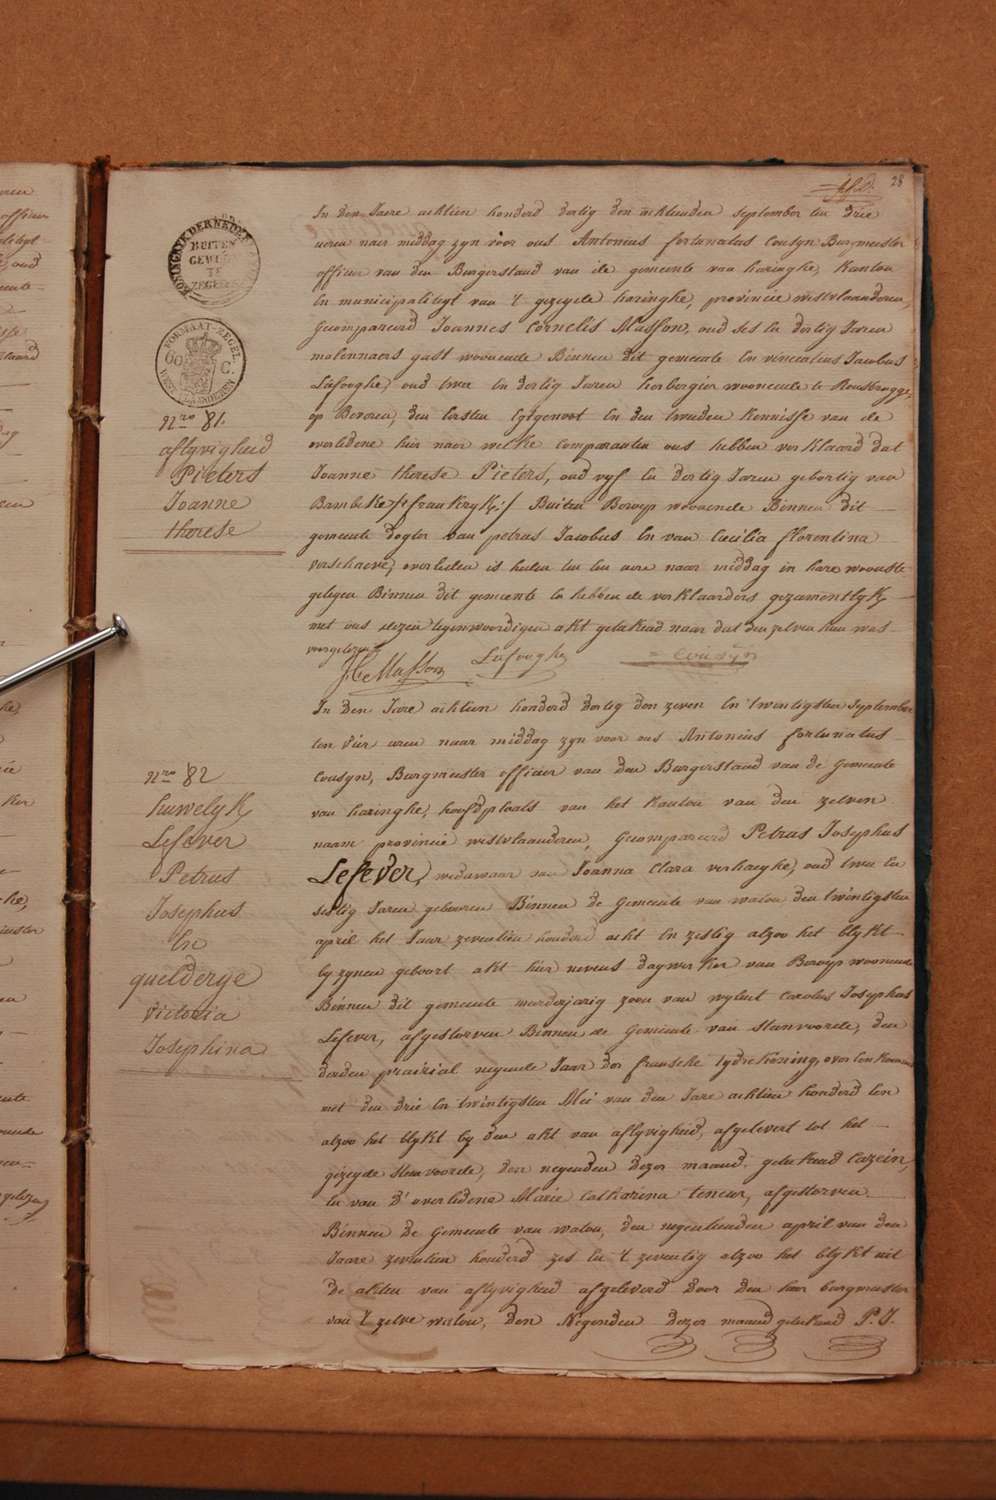 28
KONINGRYK DER NEDER
BUITEN
GEWOON
TE
ZEGEL
FORMAAT-ZEGEL
60 C.
WEST-VLAANDEREN
nro 81.
aflyvigheid
Pieters
Joanne
therese
In den Jaere achtien honderd dertig den achtienden september ten drie
uren naer middag zyn voor ons Antonius fortunatus Cousyn Burgmeester
officier van den Burgerstand van de gemeente van haringhe, Kanton
En municipaliteyt van 't gezeyde haringhe, provincie westvlaanderen,
Gecompareerd Joannes Cornelis Masson, oud ses en dertig Jaren
molennaers gast woonende Binnen dit gemeente En vincentius Jacobus
Lafooghe, oud twee en dertig Jaren herbergier woonende te Rousbrugge,
op Beveren, den Eersten Egtgenoot En den tweeden Kennisse van de
overledene hier naer welke comparanten ons hebben verklaard dat
Joanne therese Pieters, oud vyf en dertig Jaren gebortig van
Bambeke /:frankryk:/ Buiten Beroep woonende Binnen dit
gemeente dogter van petrus Jacobus En van Cecilia florentina
verschaeve, overleden is heden ten een uere naar middag in hare woonste
gelegen Binnen dit gemeente En hebben de verklaarders gezamentlyk
met ons dezen tegenwoordigen akt geteekend naar dat den zelven hun was
voorgelezen
J C Masson Lafooghe Cousyn
nro 82
huwelyk
Lefever
Petrus
Josephus
En
quelderye
victoria
Josephina
In den Jare achtien honderd dertig den zeven En twintigsten September
ten vier uren naar middag zyn voor ons Antonius fortunatus
Cousyn, Burgmeester officier van den Burgerstand van de Gemeente
van haringhe, hoofdplaats van het Kanton van den zelven
naam provincie westvlaanderen, Gecompareerd Petrus Josephus
Lefever, weduwaar van Joanna Clara verhaeghe, oud twee en
sestig Jaren geboren Binnen de Gemeente van watou den twintigsten
april het Jaar zeventien honderd acht En zestig alzoo het blykt
by zynen geboort akt hier nevens dagwerker van Beroep woonende
Binnen dit gemeente meerderjarig zoon van wylent Carolus Josephus
Lefever, afgestorven Binnen de Gemeente van steenvoorde, den
derden prairial negende Jaar der fransche tydrekening, over een komende
met den drie En twintigsten Mei van den Jare achtien honderd een
alzoo het blykt by den akt van aflyvigheid, afgelevert tot het
gezeyde steenvoorde, den negenden dezer maand. geteekend Cazein,
en van d'overledene Marie Catharina teneur, afgestorven
Binnen de Gemeente van watou, den negentienden april van den
Jaare zeventien honderd zes en 't zeventig alzoo het blykt uit
de akten van aflyvigheid afgeleverd door den heer burgmeester
van 't zelve watou, den Negenden dezer maand geteekend P. J.